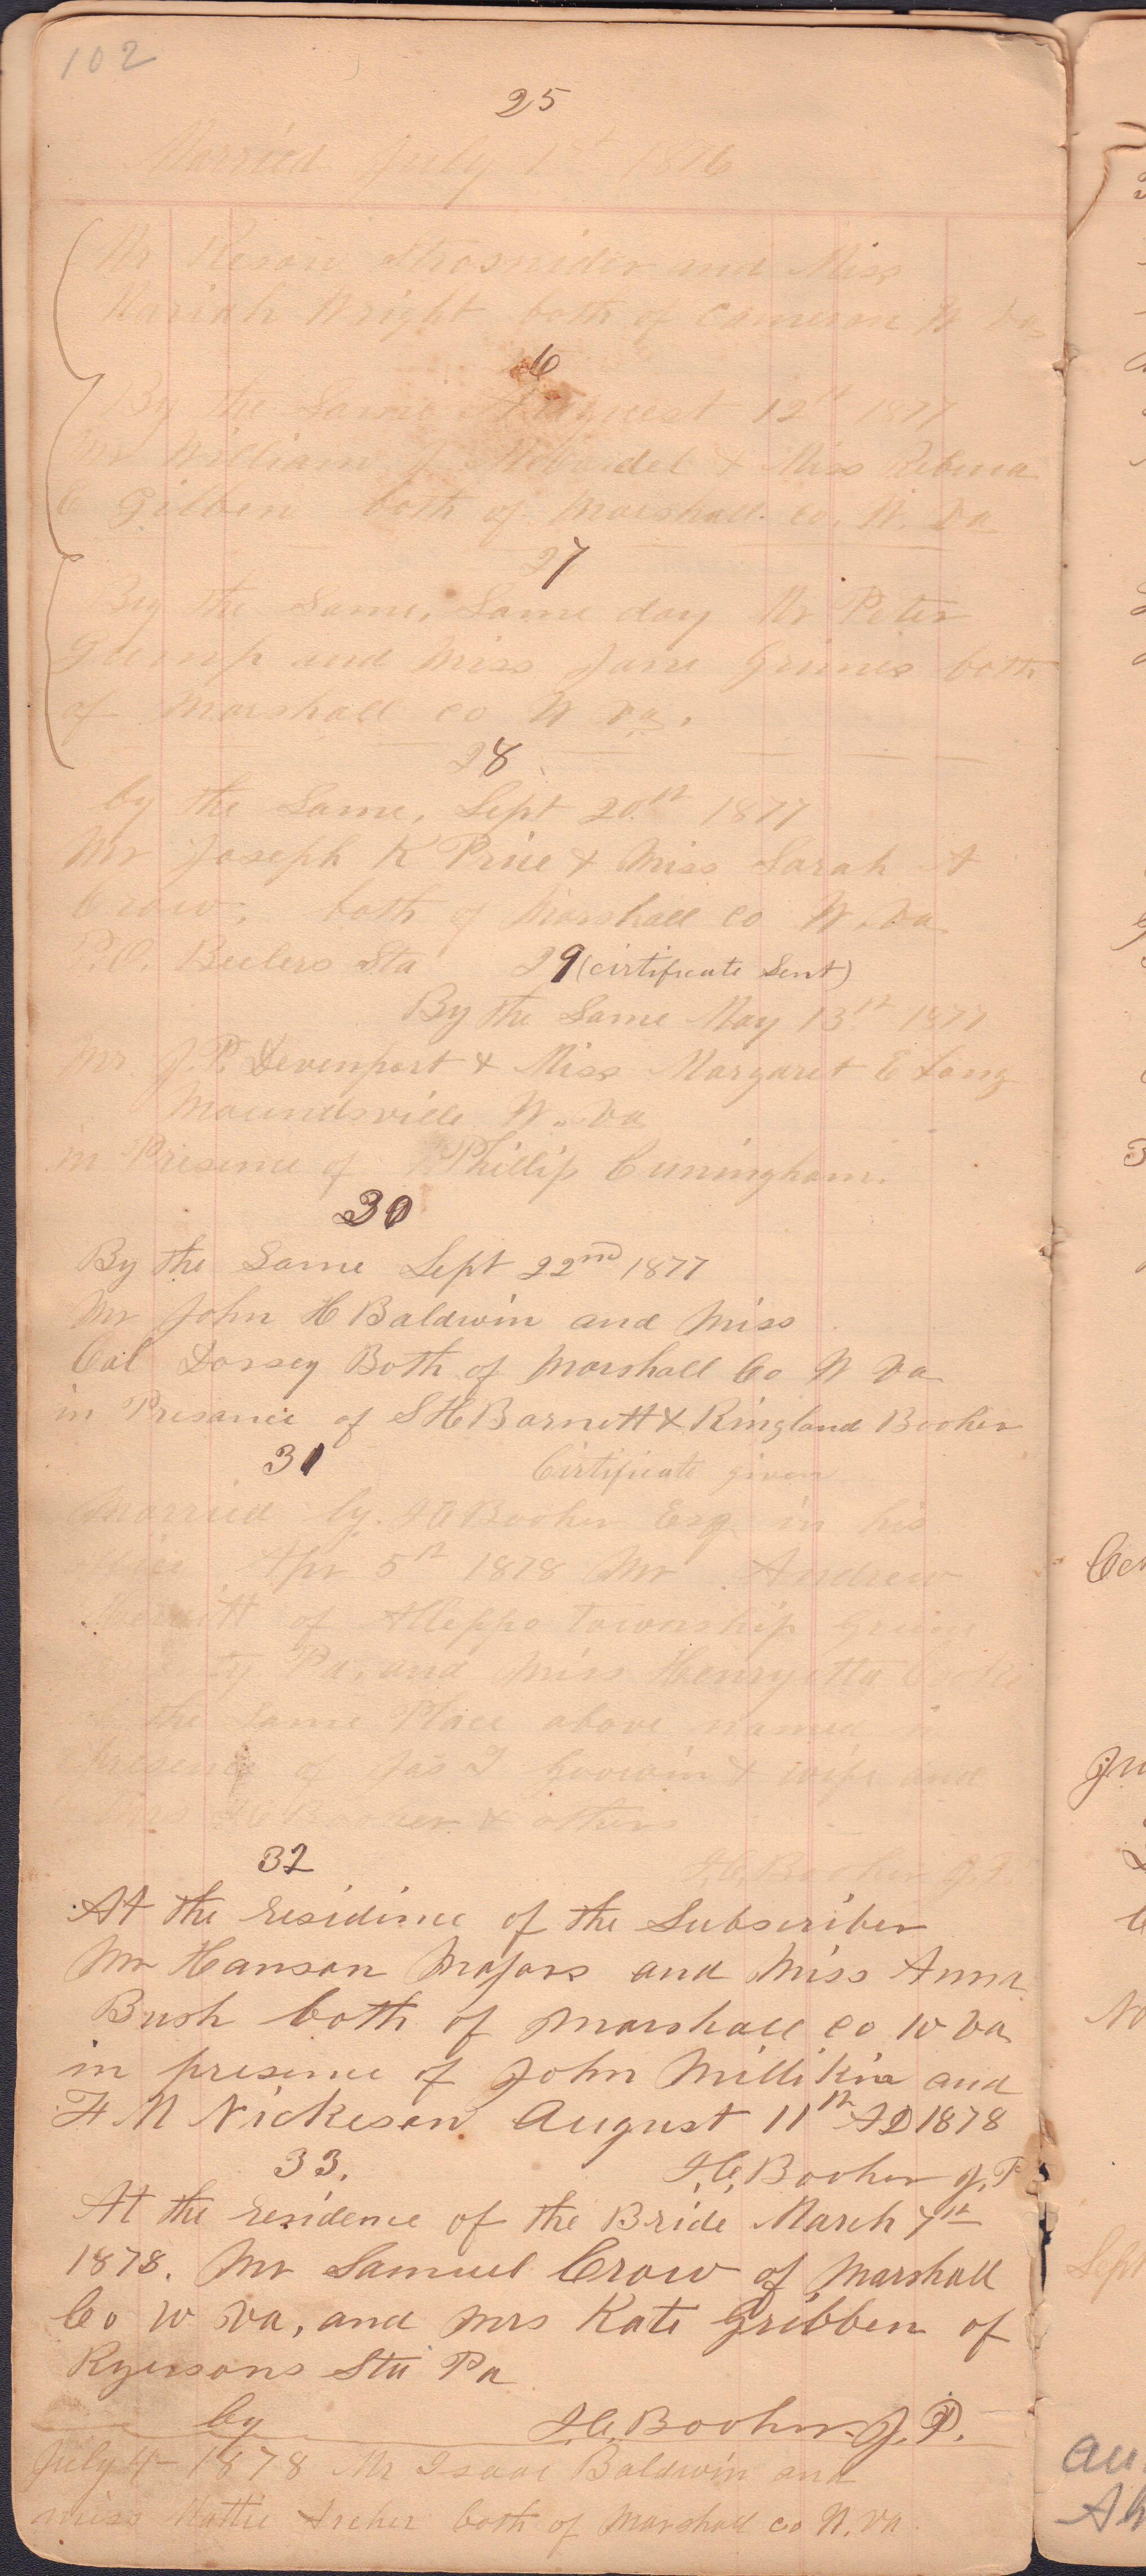 102
25
Married July 1st 1876
Mr Keson Strosnider and Miss
Mariah Wright both of Cameron W Va
26
By the Same August 12th 1877
Mr William J & Miss Rebecca
C Gilben both of Marshall co. W. Va
27
By the Same, Same day Mr Peter
Gump and Miss Jane Grimes both
of Marshall co W Va.
28
by the Same, Sept 20th 1877
Mr Joseph K Price & Miss Sarah A
Crow, both of Marshall co W. Va
P.O. Beelers Sta 29 (Cirtificate Sent)
By the Same May 13th 1877
Mr J. P. Devenport & Miss Margaret E Long
Moundsville W. Va
in Presence of Phillip Cuningham.
30
By the Same Sept 22nd 1877
Mr John H Baldwin and Miss
Cal Dorsey Both of Marshall Co W Va
in Presance of S H Barnett & Ringland Booher
31 Certificate given
Married by. F C Booher Esq in his
office Apr 5th 1878 Mr Andrew
of Alleppo Township Green
Pa. and Miss Henryetta
the Same Place above named in
presence of Jas T Goodwin & wife and
Booher & others
F. C. Booher J. P.
32
At the residince of the Subscriber
Mr Hanson Majors and Miss Anna
Bush both of Marshall co W Va
in presence of John Millikin and
F M Nickeson August 11th AD 1878
33. F. C. Booher J. P
At the residence of the Bride March 7th
1878. Mr Samuel Crow of Marshall
Co W Va, and Mrs Kate Gribben of
Ryersons Sta Pa
by F. C. Booher J. P.
July 4 1878 Mr Isaac Baldwin and
Miss Mattie Archer both of Marshall co W. Va